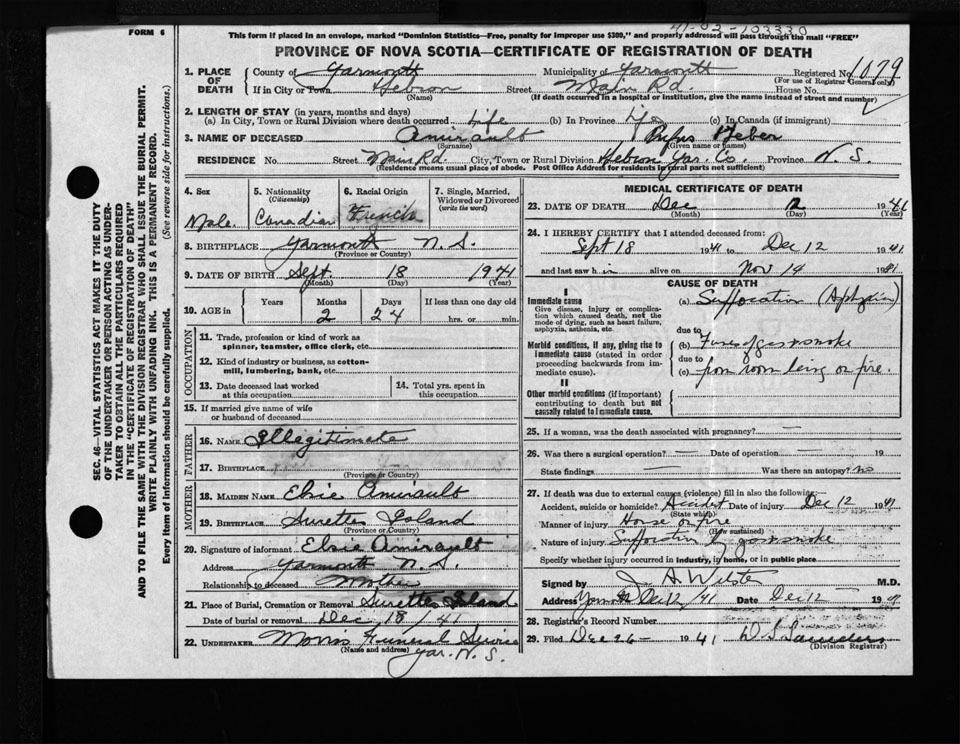 FORM 6
41-02-103330
This form if placed in an envelope, marked "Dominion Statistics—Free, penalty for improper use $300," and properly addressed will pass through the mail "FREE"
PROVINCE OF NOVA SCOTIA—CERTIFICATE OF REGISTRATION OF DEATH
SEC. 46—VITAL STATISTICS ACT MAKES IT THE DUTY
OF THE UNDERTAKER OR PERSON ACTING AS UNDER-
TAKER TO OBTAIN ALL THE PARTICULARS REQUIRED
IN THE "CERTIFICATE OF REGISTRATION OF DEATH"
AND TO FILE THE SAME WITH THE DIVISION REGISTRAR WHO SHALL ISSUE THE BURIAL PERMIT.
WRITE PLAINLY WITH UNFADING INK. THIS IS A PERMANENT RECORD.
Every item of Information should be carefully supplied. (See reverse side for instructions.)
1. PLACE OF DEATH County of Yarmouth Municipality of Yarmouth Registered No. 1079
(For use of Registrar General only)
If in City or Town Hebron Street Main Rd. House No.
(Name) (If death occurred in a hospital or institution, give the name instead of street and number)
2. LENGTH OF STAY (in years, months and days)
(a) In City, Town or Rural Division where death occurred Life (b) In Province Life (c) In Canada (if immigrant)
3. NAME OF DECEASED Amirault Rufus Heber
(Surname) (Given name or names)
RESIDENCE No. Street Main Rd. City, Town or Rural Division Hebron Yar. Co. Province N. S.
(Residence means usual place of abode. Post Office Address for residents in rural parts not sufficient)
4. Sex Male
5. Nationality (Citizenship) Canadian
6. Racial Origin French
7. Single, Married, Widowed or Divorced (write the word)
8. BIRTHPLACE Yarmouth N. S.
(Province or Country)
9. DATE OF BIRTH Sept. 18 1941
(Month) (Day) (Year)
10. AGE in Years Months 2 Days 24 If less than one day old
hrs. or min.
OCCUPATION
11. Trade, profession or kind of work as
spinner, teamster, office clerk, etc.
12. Kind of industry or business, as cotton-
mill, lumbering, bank, etc.
13. Date deceased last worked
at this occupation
14. Total yrs. spent in
this occupation
15. If married give name of wife
or husband of deceased
FATHER
16. NAME Illegitimate
17. BIRTHPLACE
(Province or Country)
MOTHER
18. MAIDEN NAME Elsie Amirault
19. BIRTHPLACE Surettes Island
(Province or Country)
20. Signature of informant Elsie Amirault
Address Yarmouth N. S.
Relationship to deceased Mother
21. Place of Burial, Cremation or Removal Surettes Island
Date of burial or removal Dec 18/41
22. UNDERTAKER Morris Funeral Service
(Name and address) Yar. N. S.
MEDICAL CERTIFICATE OF DEATH
23. DATE OF DEATH Dec 12 1941
(Month) (Day) (Year)
24. I HEREBY CERTIFY that I attended deceased from:
Sept 18 1941 to Dec 12 1941
and last saw h im alive on Nov 19 1941
CAUSE OF DEATH
I
Immediate cause
Give disease, injury or complica-
tion which caused death, not the
mode of dying, such as heart failure,
asphyxia, asthenia, etc.
(a) Suffocation (Asphyxia)
due to
Morbid conditions, if any, giving rise to
immediate cause (stated in order
proceeding backwards from im-
mediate cause).
(b) Fumes of gas & smoke
due to
(c) from room being on fire.
II
Other morbid conditions (if important)
contributing to death but not
causally related to immediate cause.
25. If a woman, was the death associated with pregnancy? —
26. Was there a surgical operation? — Date of operation — 19
State findings — Was there an autopsy? no
27. If death was due to external causes (violence) fill in also the following:—
Accident, suicide or homicide? Accident Date of injury Dec 12 1941
(State which)
Manner of injury House on fire
(How sustained)
Nature of injury Suffocation by gas & smoke
Specify whether injury occurred in industry, in home, or in public place
Signed by M.D.
Address Dec 12/41 Date Dec 12 19
28. Registrar's Record Number
29. Filed Dec 26 - 1941 Saunders
(Division Registrar)